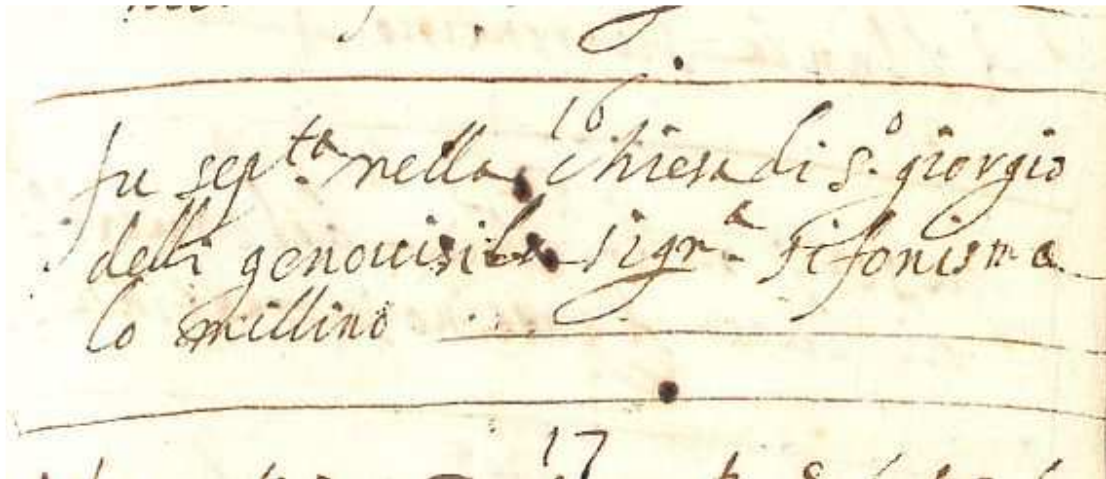 16
fu sep.ta nella Chiesa di S.o giorgio
delli genouisi la sigr.a sifonisma
lo millino
17